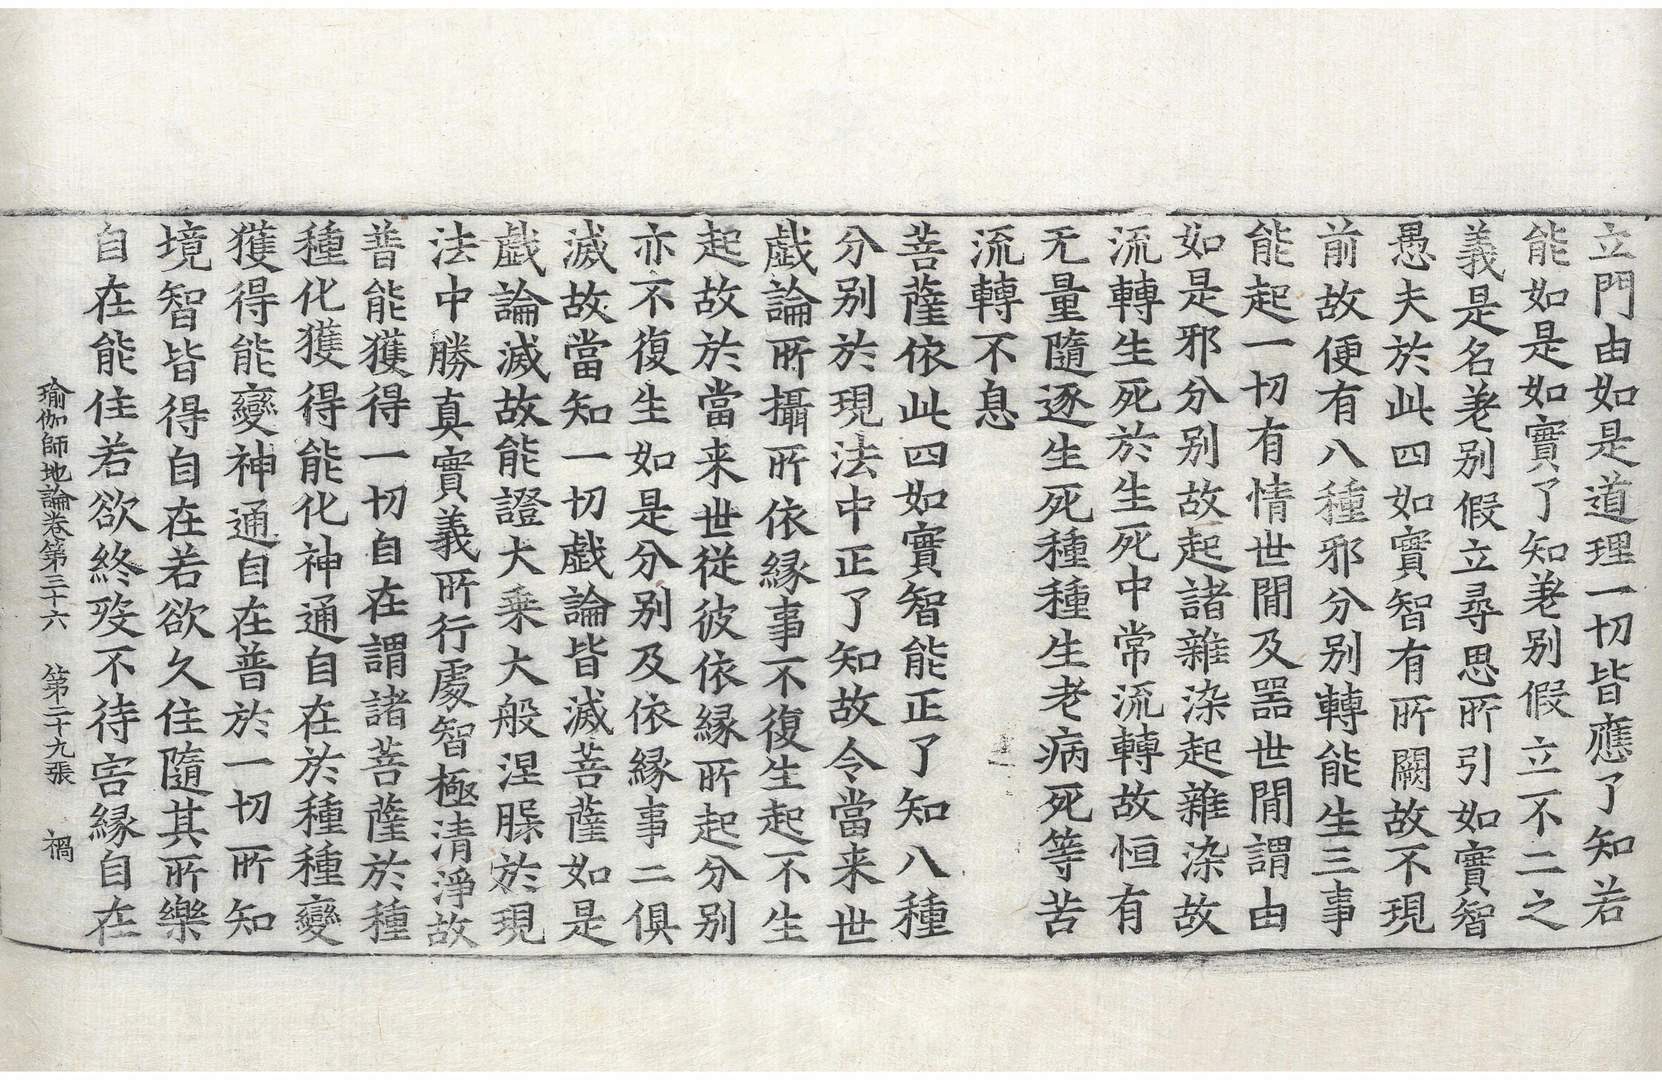 立門由如是道理一切皆應了知若
能如是如實了知差別假立不二之
義是名差別假立尋思所引如實智
愚夫於此四如實智有所闕故不現
前故便有八種邪分別轉能生三事
能起一切有情世間及器世間謂由
如是邪分別故起諸雜染起雜染故
流轉生死於生死中常流轉故恒有
无量隨逐生死種種生老病死等苦
流轉不息
菩薩依此四如實智能正了知八種
分別於現法中正了知故令當来世
戲論所攝所依緣事不復生起不生
起故於當来世從彼依緣所起分別
亦不復生如是分別及依緣事二俱
滅故當知一切戲論皆滅菩薩如是
戲論滅故能證大乘大般涅槃於現
法中勝真實義所行處智極清淨故
普能獲得一切自在謂諸菩薩於種
種化獲得能化神通自在於種種變
獲得能變神通自在普於一切所知
境智皆得自在若欲久住隨其所樂
自在能住若欲終歿不待害緣自在
瑜伽師地論卷第三十六 第二十九張 禍